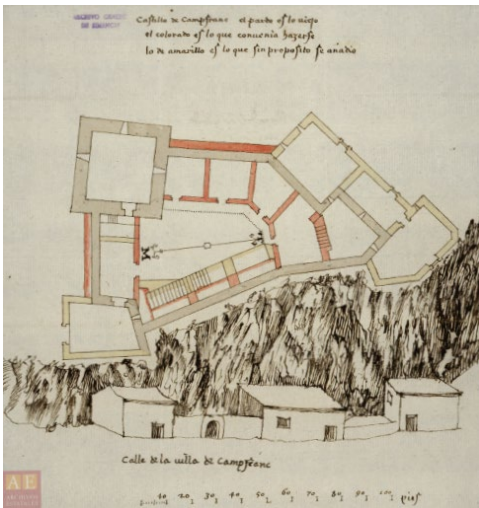 ARCHIVO GENERAL
DE SIMANCAS
Castillo de Campfranc el pardo es lo viejo
el colorado es lo que convenia hazerse
lo de amarillo es lo que sin proposito se añadio
Calle de la villa de Campfranc
10 20 30 40 50 60 70 80 90 100 pies
AE
ARCHIVOS
ESTATALES